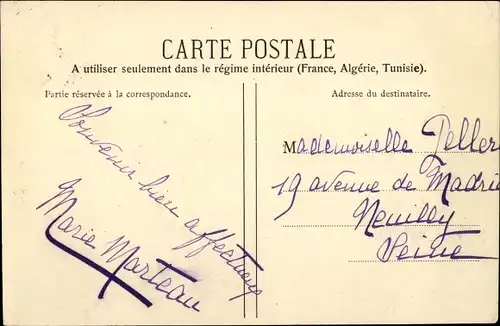 CARTE POSTALE
A utiliser seulement dans le régime intérieur (France, Algérie, Tunisie).
Partie réservée à la correspondance.
Souvenir bien affectueux
Marie Marteau
Adresse du destinataire.
Mademoiselle
19 avenue de Madrid
Neuilly
Seine